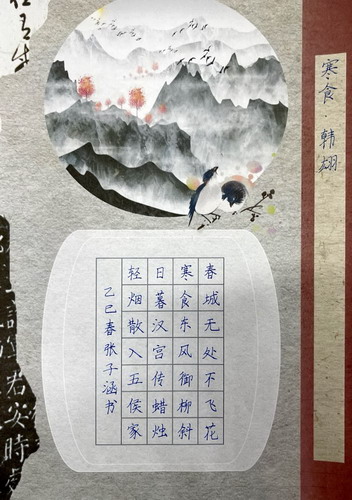 寒食·韩翃
春城无处不飞花
寒食东风御柳斜
日暮汉宫传蜡烛
轻烟散入五侯家
乙巳春张子涵书